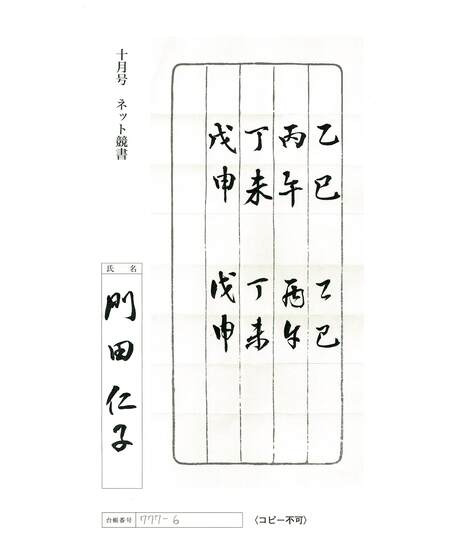 乙巳
丙午
丁未
戊申
乙巳
丙午
丁未
戊申
十月号 ネット競書
氏名
門田仁子
台帳番号 777-6
〈コピー不可〉